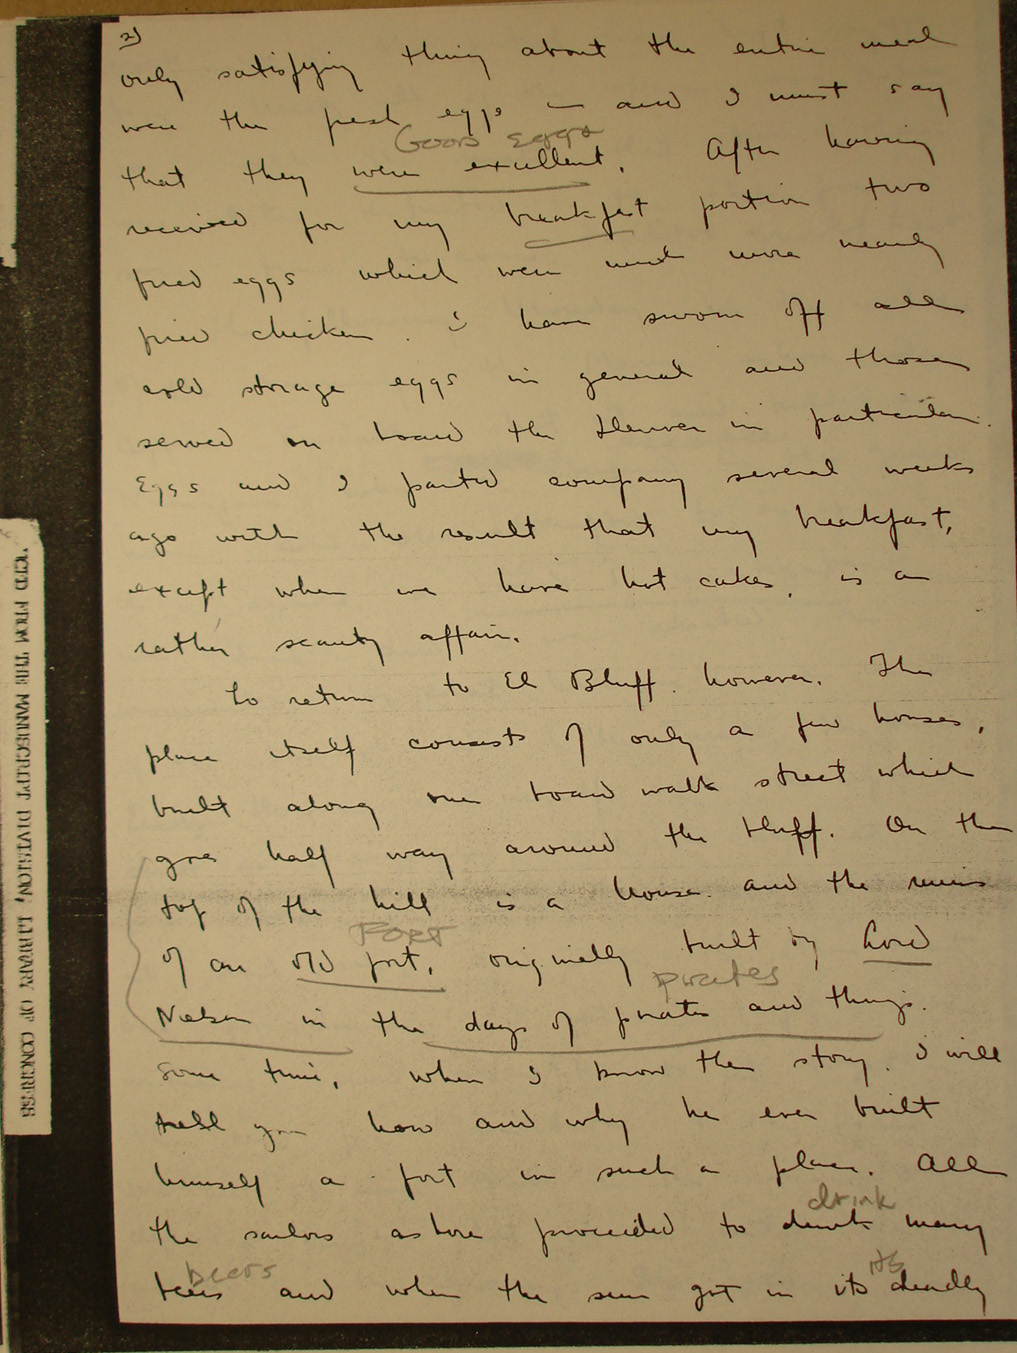 2)
only satisfying thing about the entire meal
were the fresh eggs — and I must say
Good Eggs
that they were excellent. After having
received for my breakfast portion two
fried eggs which were much more nearly
fried chicken. I have sworn off all
cold storage eggs in general and those
served on board the Denver in particular.
Eggs and I parted company several weeks
ago with the result that my breakfast,
except when we have hot cakes, is a
rather scanty affair.
To return to El Bluff. however. The
place itself consists of only a few houses,
built along one board walk street which
goes half way around the bluff. On the
top of the hill is a house and the ruins
Fort
of an old fort, originally built by Lord
pirates
Nelson in the days of pirates and things.
Some time, when I know the story. I will
tell you how and why he ever built
himself a fort in such a place. All
drink
the sailors ashore proceeded to drink many
beers its
beers and when the sun got in its deadly
'CED FROM THE MANUSCRIPT DIVISION, LIBRARY OF CONGRESS